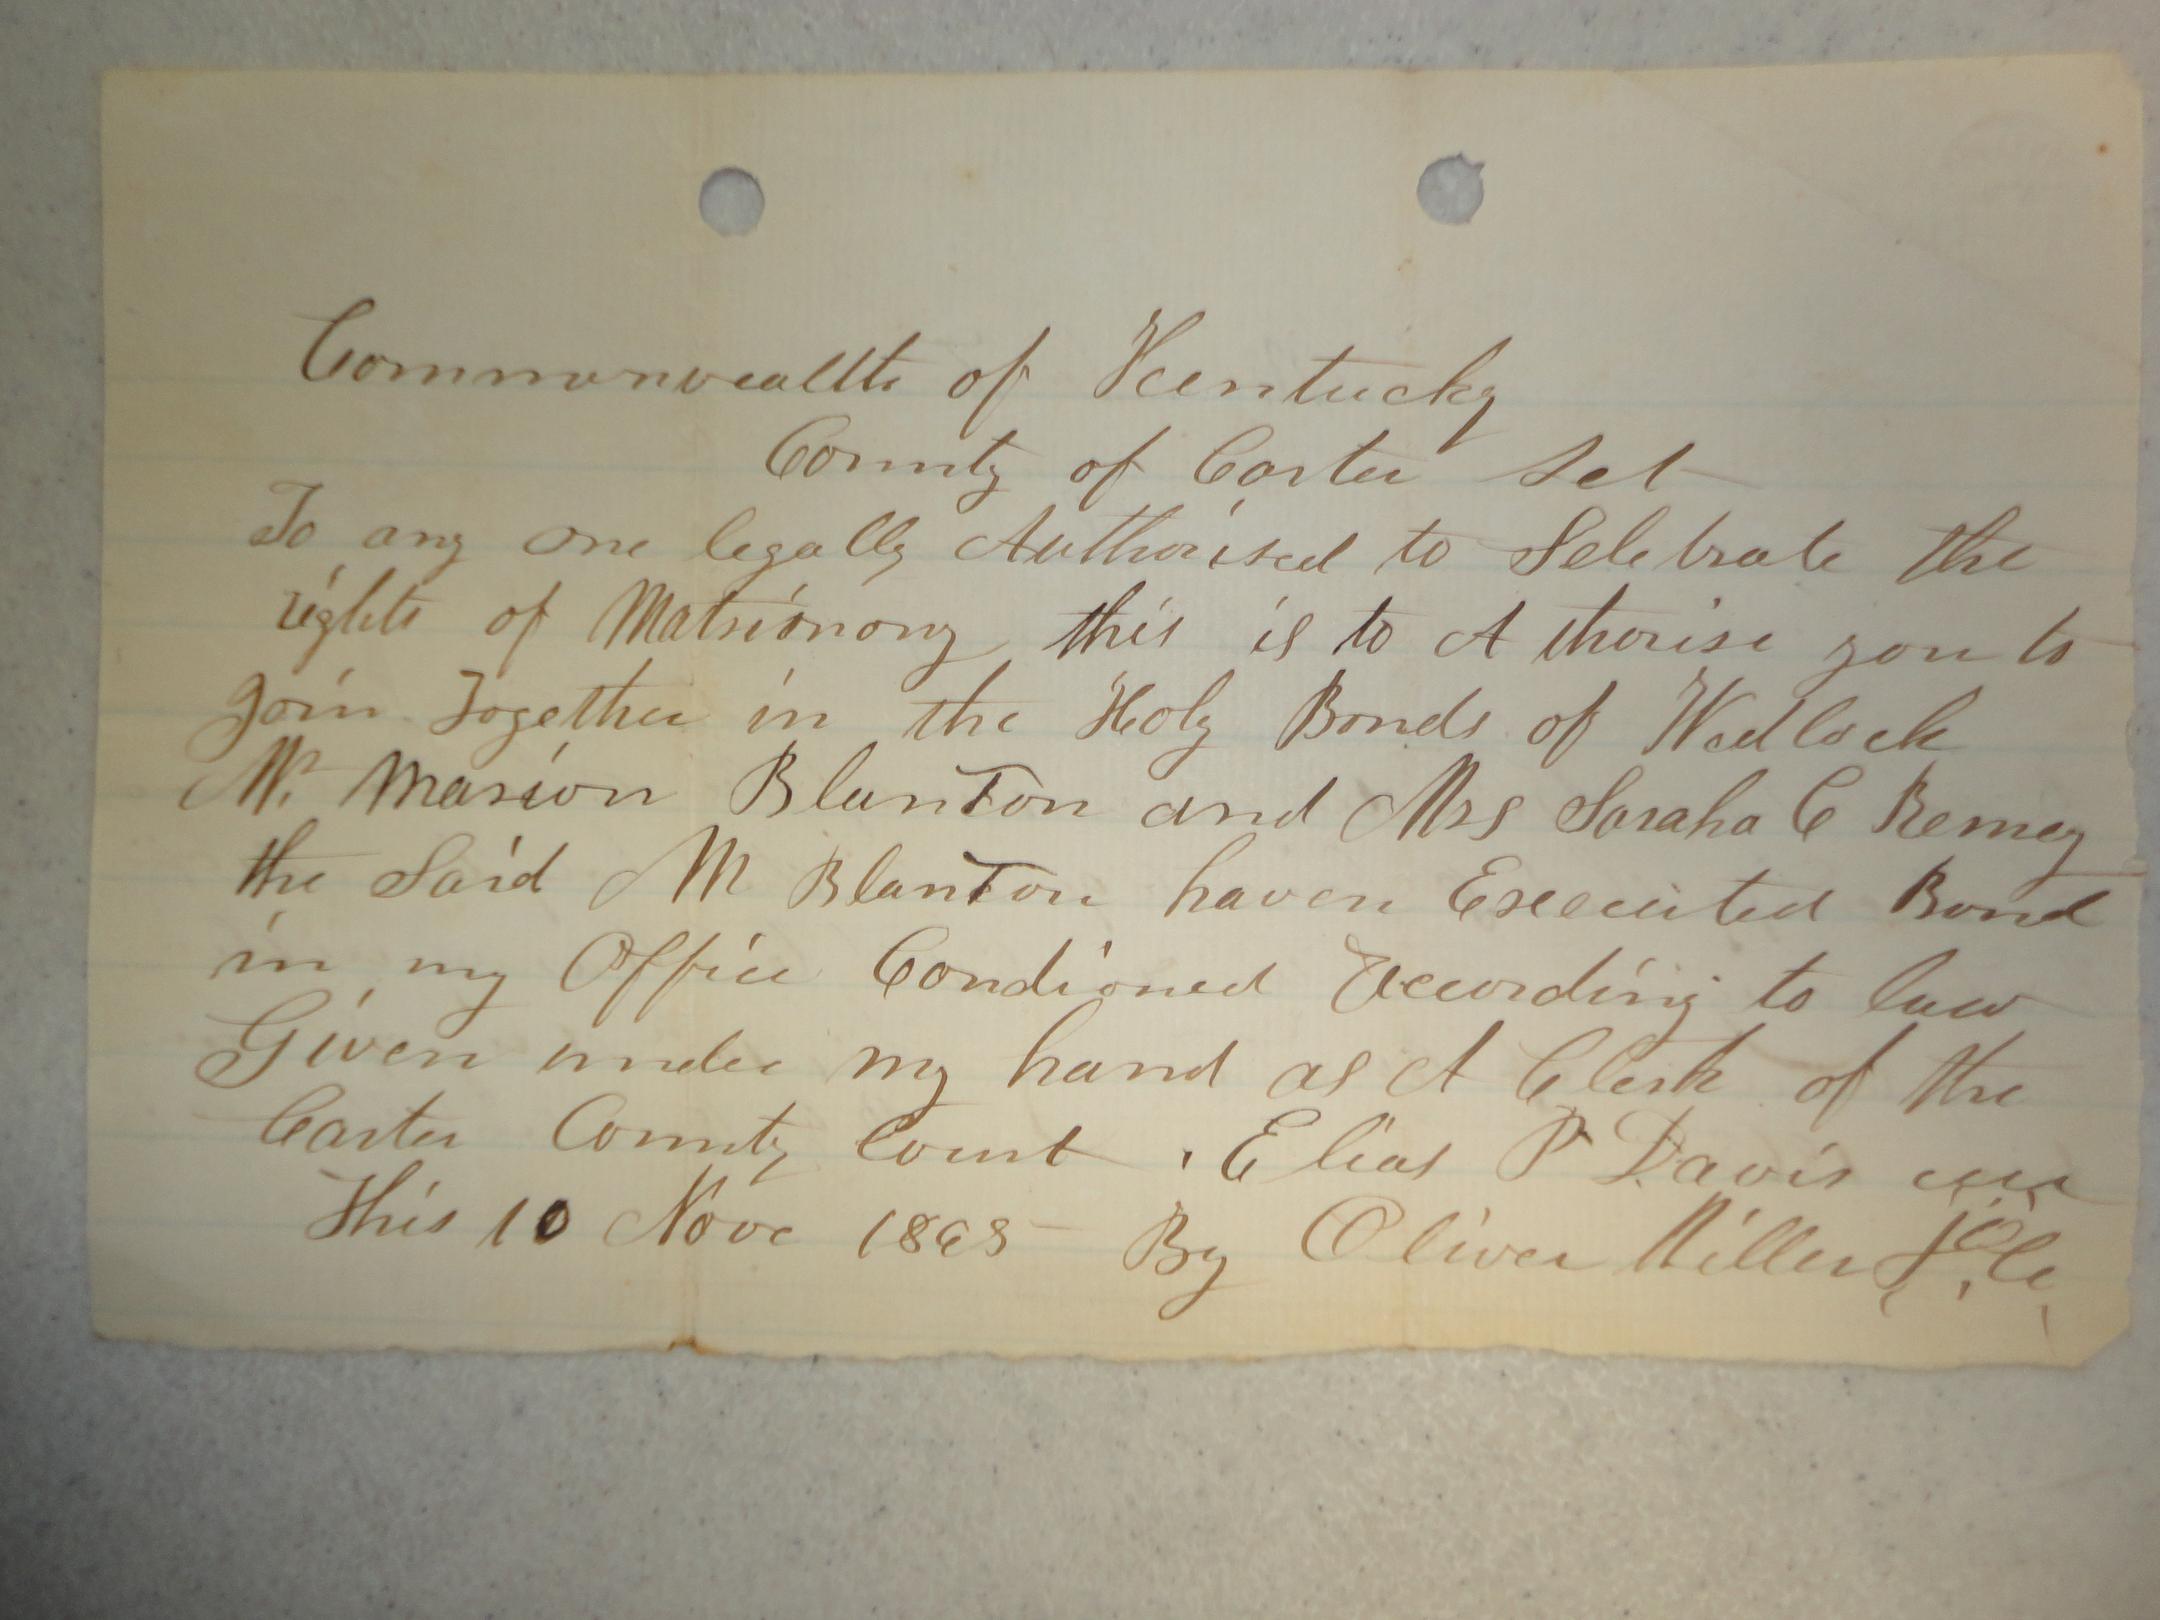 Commonwealth of Kentucky
County of Carter Sct
To any one legally Authorised to Selebrate the
rights of Matrimony this is to A thorise you to
Join Together in the Holy Bonds of Wedlock
Mr. Marion Blanton and Mrs Saraha C Remey
the Said M Blanton haven Executed Bond
in my Office Condioned According to law
Given under my hand as A Clerk of the
Carter County Court . Elias P Davis
This 10 Nove 1868 By Oliver Miller